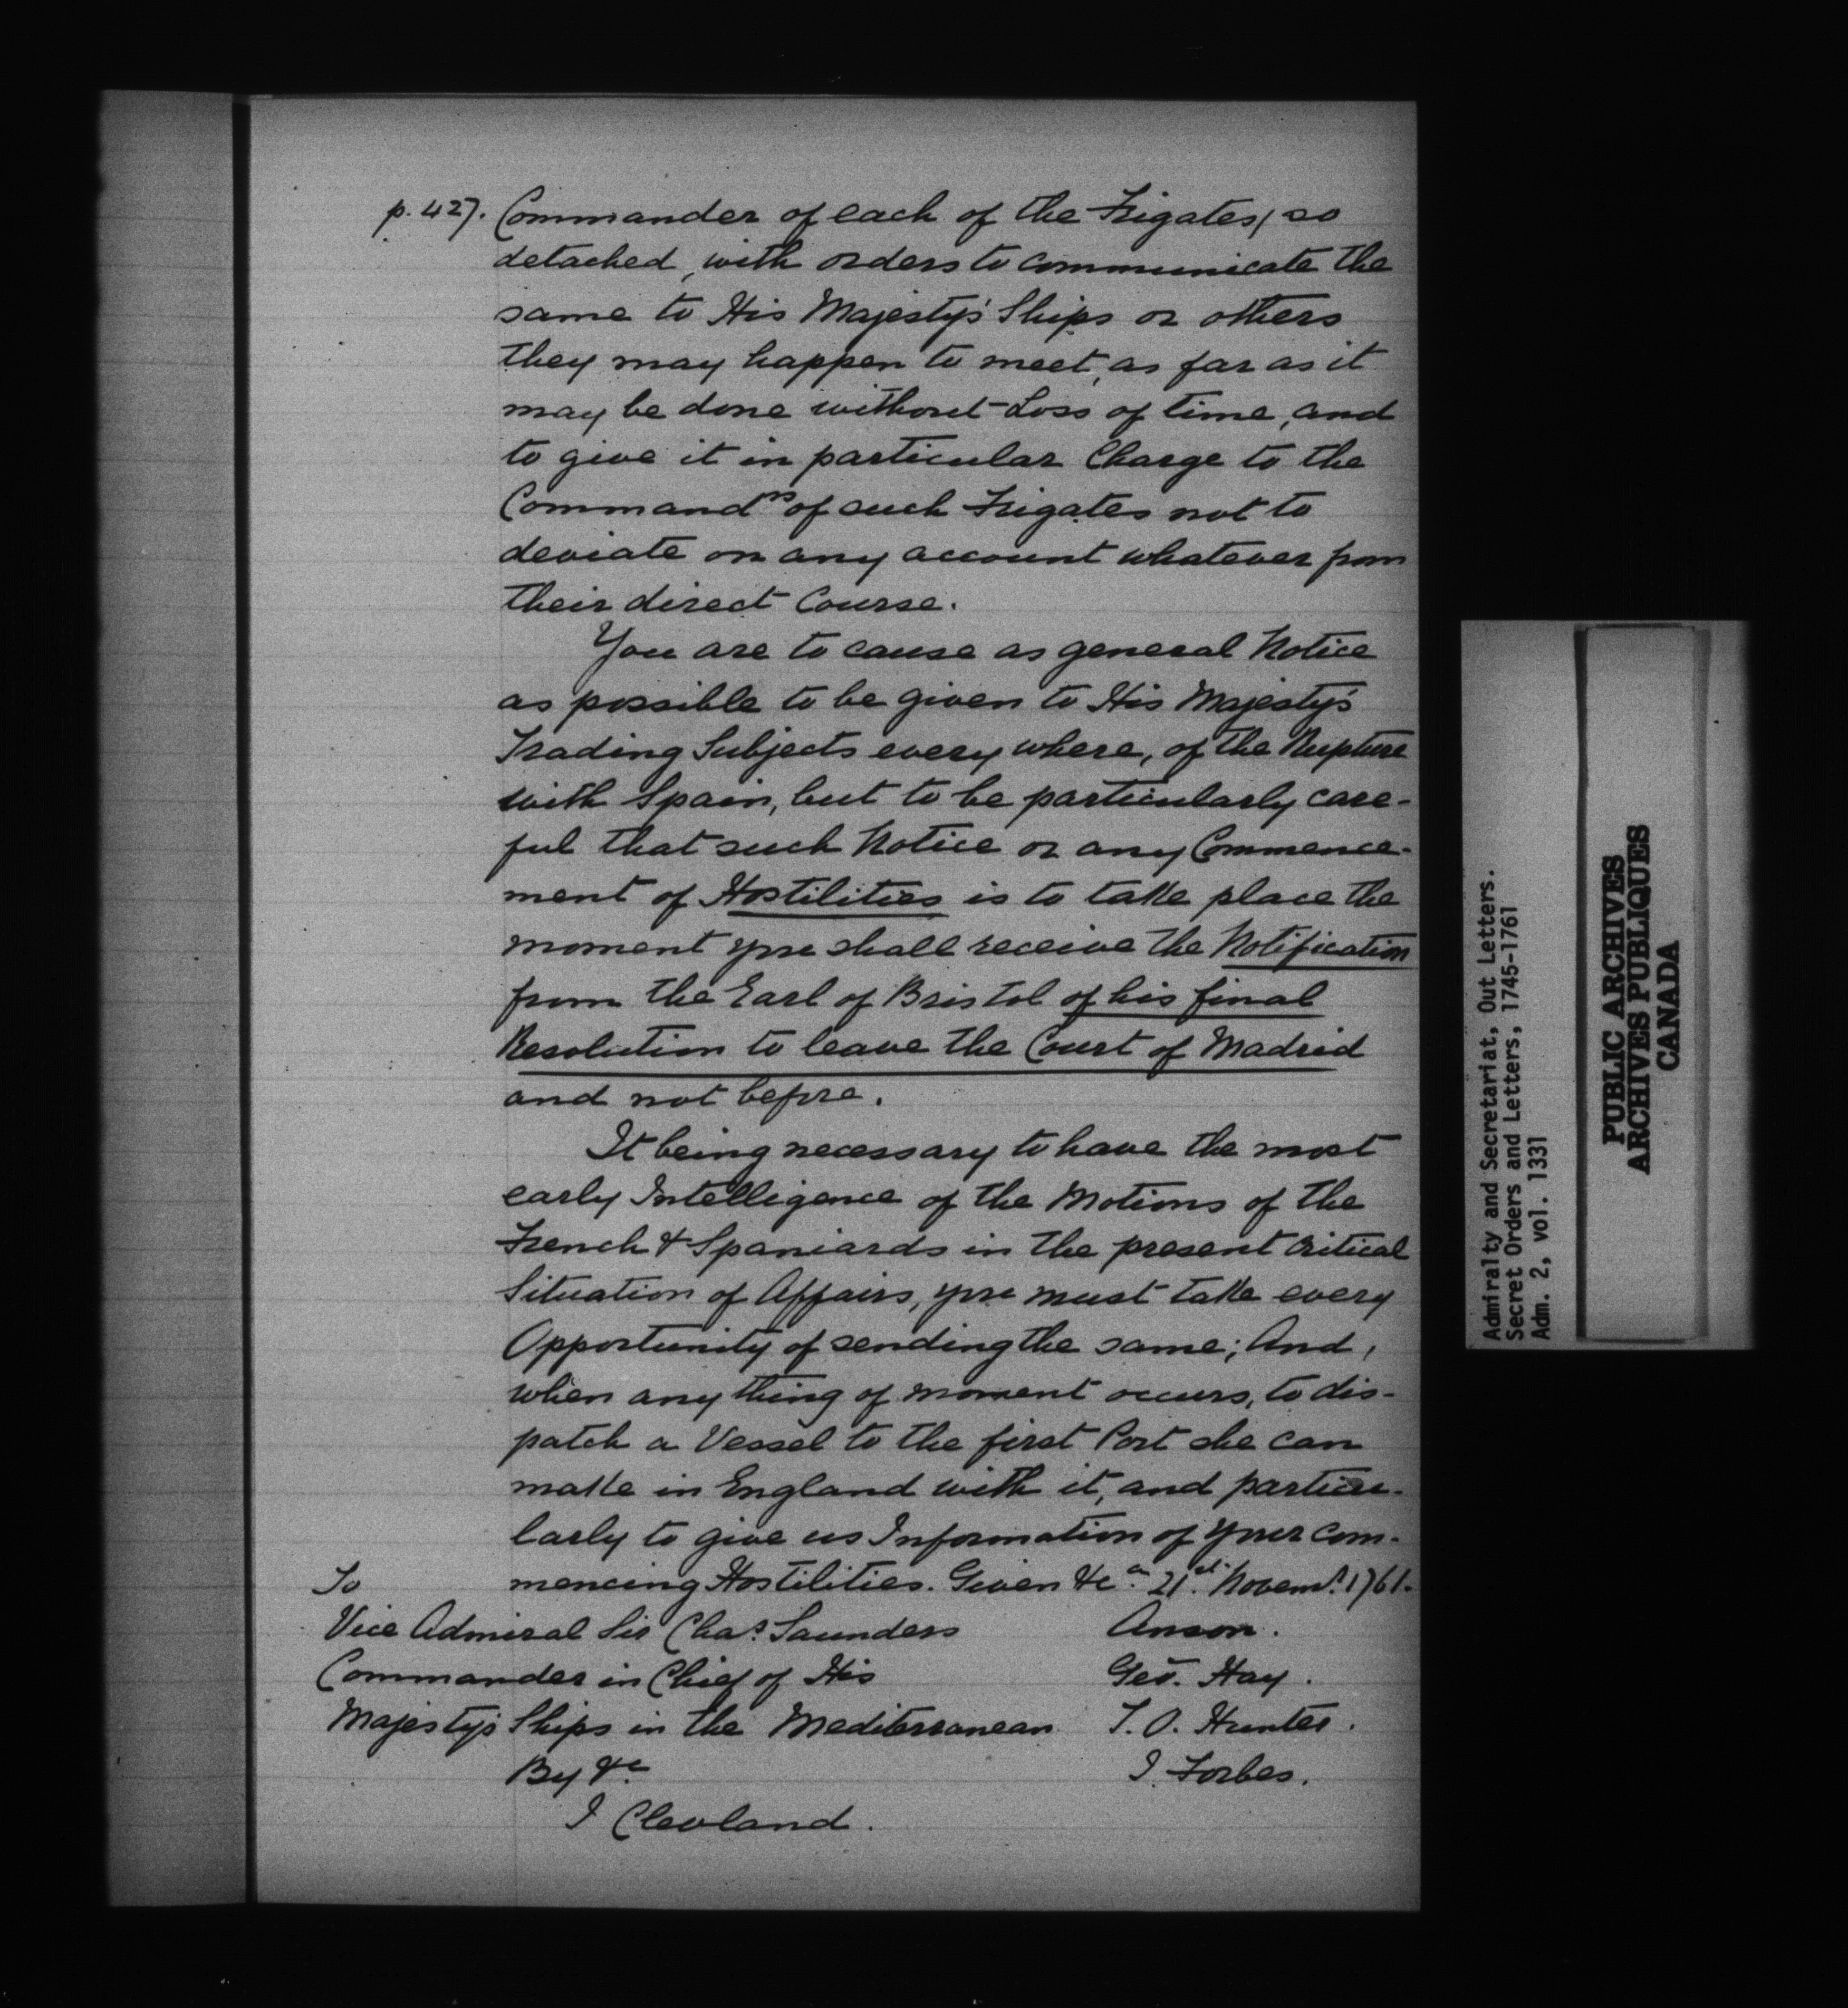 p. 427. Commander of each of the Frigates, so
detached, with orders to communicate the
same to His Majesty's Ships or others
they may happen to meet, as far as it
may be done without Loss of time, and
to give it in particular Charge to the
Command.rs of such Frigates not to
deviate on any account whatever from
their direct Course.
You are to cause as general Notice
as possible to be given to His Majesty's
Trading Subjects every where, of the Rupture
with Spain, but to be particularly care-
ful that such Notice or any Commence-
ment of Hostilities is to take place the
moment you shall receive the Notification
from the Earl of Bristol of his final
Resolution to leave the Court of Madrid
and not before.
It being necessary to have the most
early Intelligence of the Motions of the
French & Spaniards in the present critical
Situation of Affairs, you must take every
Opportunity of sending the same; And,
when any thing of moment occurs, to dis-
patch a Vessel to the first Port she can
make in England with it, and particu-
larly to give us Information of your com-
mencing Hostilities. Given &c.a 21.st Novem.r 1761.
To
Vice Admiral Sir Cha.s Saunders
Commander in Chief of His
Majesty's Ships in the Mediterranean
By &c.
J Clevland.
Anson.
Geo. Hay.
T. O. Hunter.
J. Forbes.
Admiralty and Secretariat, Out Letters.
Secret Orders and Letters, 1745-1761
Adm. 2, vol. 1331
PUBLIC ARCHIVES
ARCHIVES PUBLIQUES
CANADA